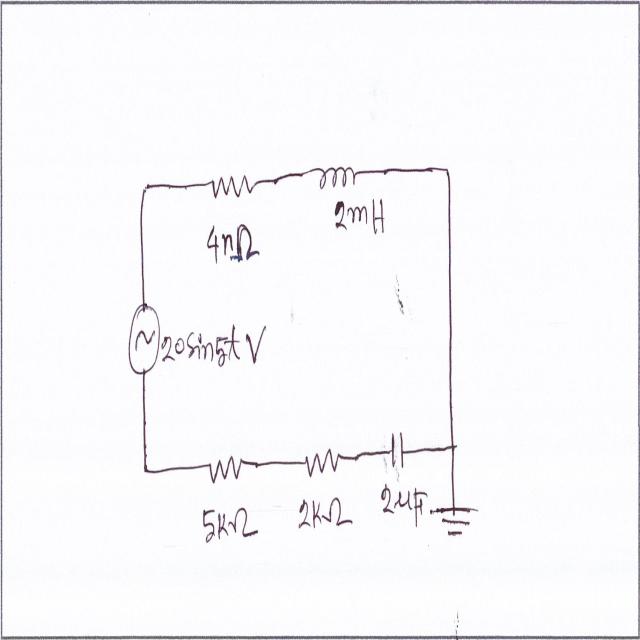 4nΩ
2mH
~
20sin5t V
5kΩ
2kΩ
2μF